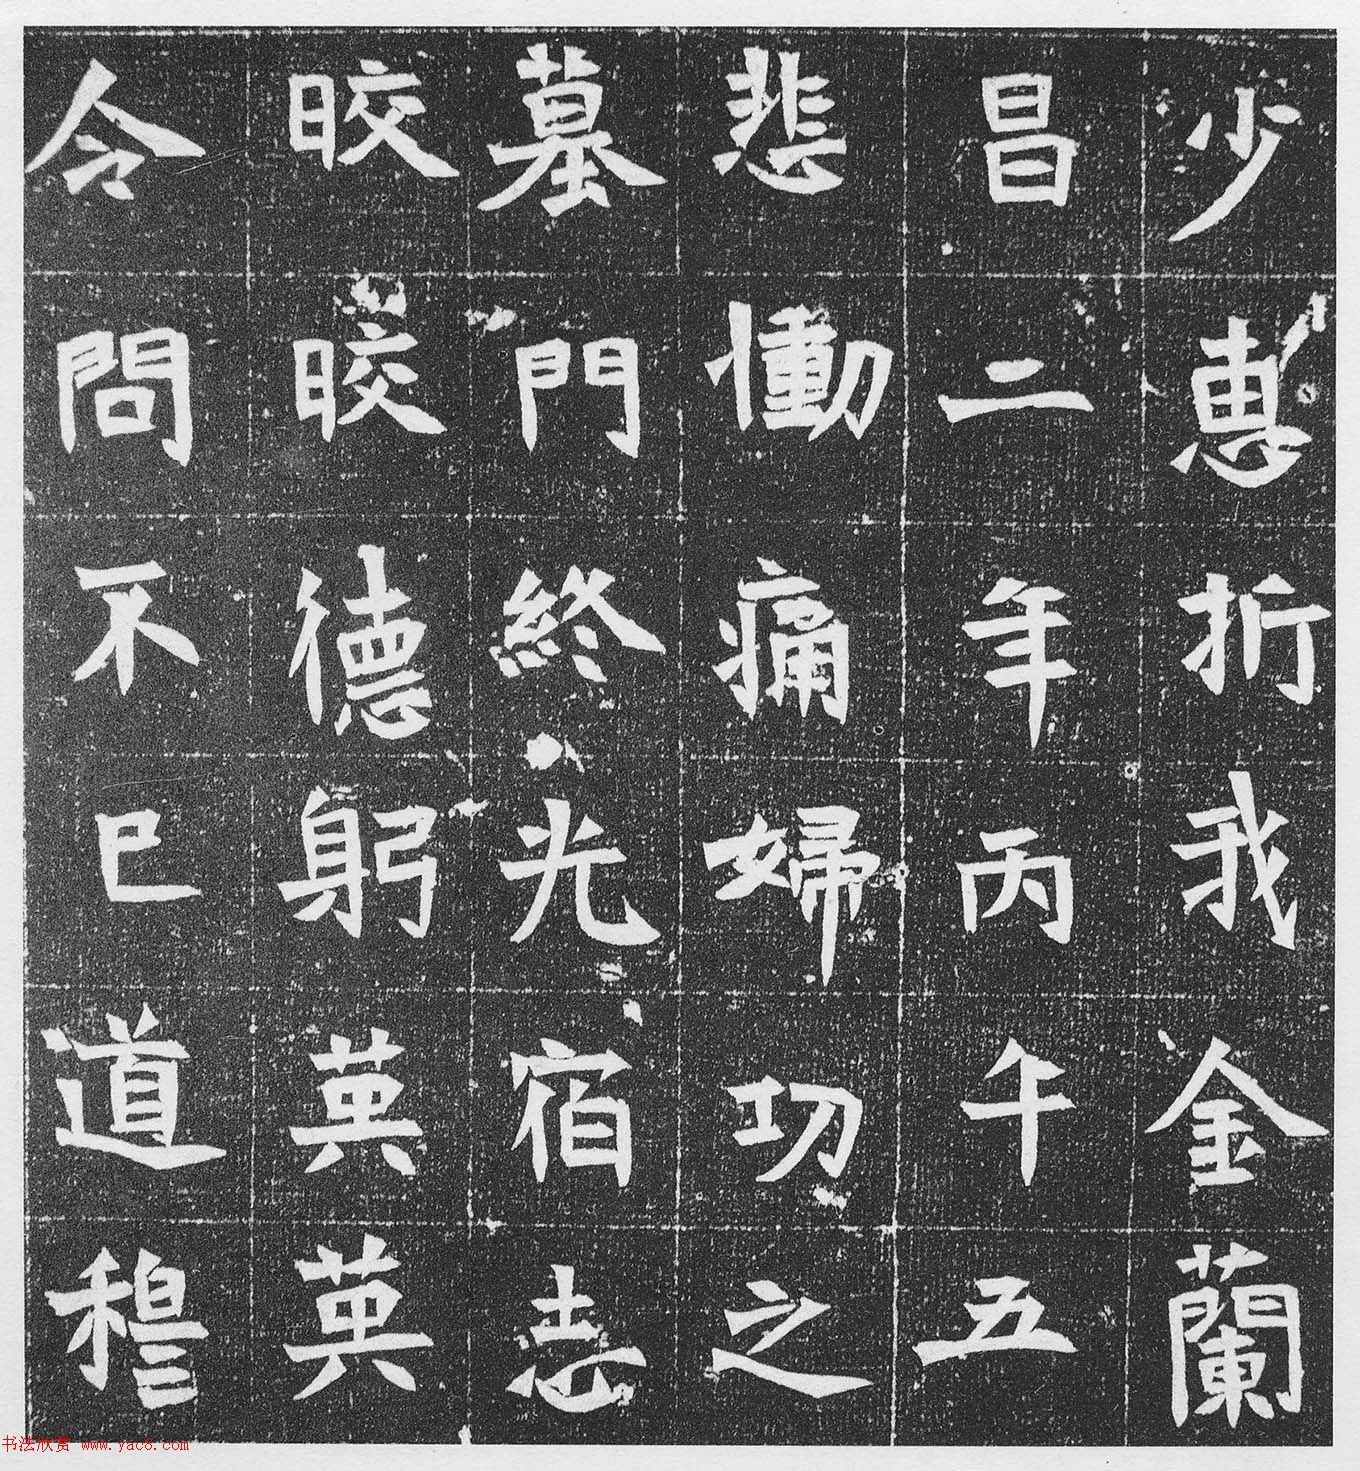 少惠折我金蘭
昌二年丙午五
悲慟痛婦功之
墓門終光宿志
晈晈德躬英英
令問不已道穆
书法欣赏 www.yac8.com